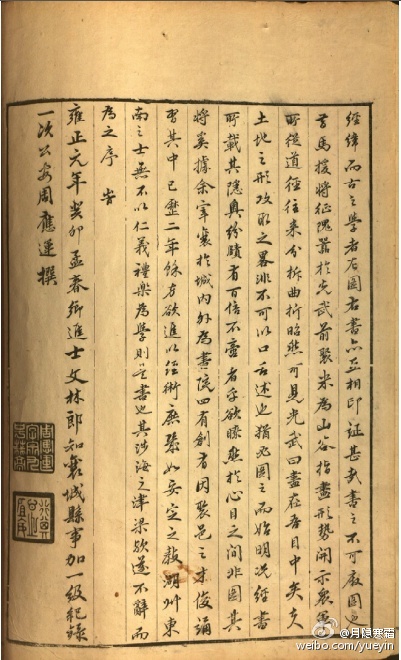 經緯而古之學者左圖右書亦互相印證甚哉書之不可廢圖也
昔馬援將征隗囂於光武前聚米為山谷指畫形勢開示衆軍
所從道徑往來分析曲折昭然可見光武曰盡在吾目中矣夫
土地之形攻取之畧非不可以口舌述也猶必圖之而始明况經書
所載其隱奧紛賾有百倍不啻者乎欲瞭然於心目之間非圖其
將奚據余宰襄於城內外為書院四有創有因聚邑之才俊誦
習其中已歷二年餘方欲進以經術庶幾如安定之教湖州東
南之士無不以仁義禮樂為學則是書也其涉海之津梁歟遂不辭而
為之序 峕
雍正元年癸卯孟春鄉進士文林郎知襄城縣事加一級紀錄
一次公安周應運撰
@月隐寒霜
weibo.com/yueyin